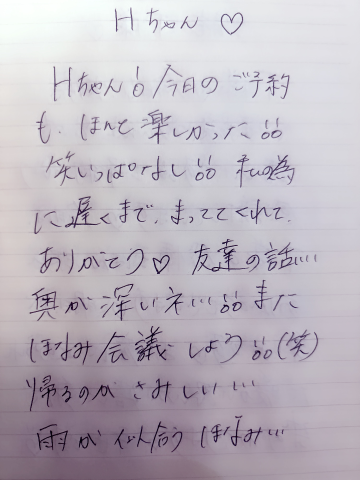 Hちゃん♡
Hちゃん!!今日のご予約
も、ほんと楽しかった!!
笑いっぱなし!! 私の為
に遅くまで、まっててくれて、
ありがとう♡ 友達の話…
奥が深いネ…!!また
ほなみ会議しよう!!(笑)
帰るのがさみしい…
雨が似合うほなみ…